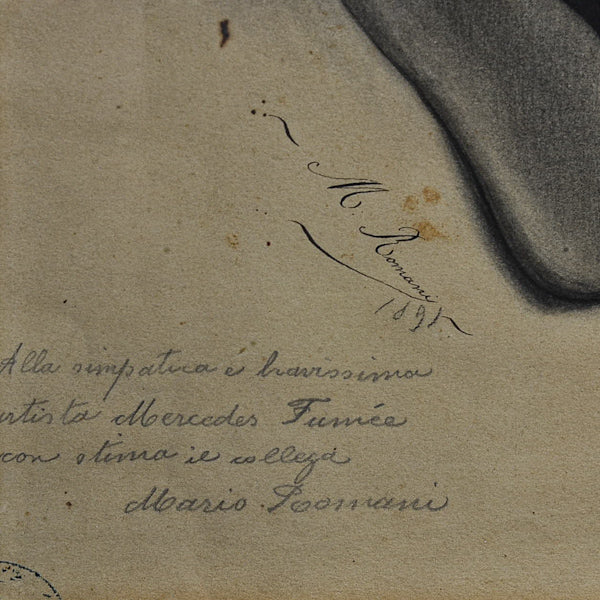 M. Romani
189
Alla simpatica é bravissima
artista Mercedes Fumée
con stima il collega
Mario Romani